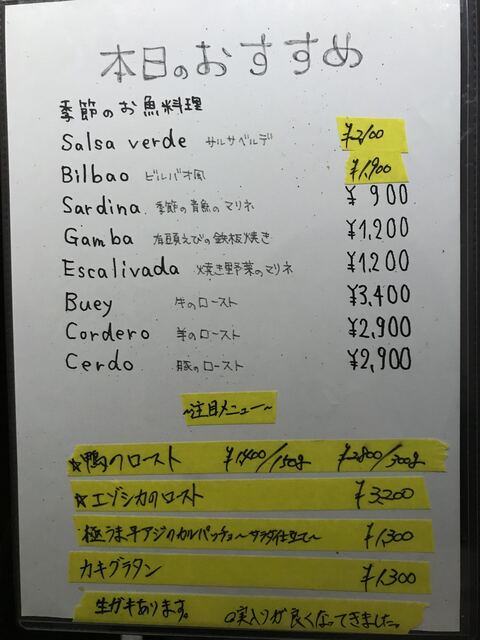 本日のおすすめ
季節のお魚料理
Salsa verde サルサベルデ ¥2100
Bilbao ビルバオ風 ¥1,900
Sardina 季節の青魚のマリネ ¥900
Gamba 有頭えびの鉄板焼き ¥1,200
Escalivada 焼き野菜のマリネ ¥1,200
Buey 牛のロースト ¥3,400
Cordero 羊のロースト ¥2,900
Cerdo 豚のロースト ¥2,900
~注目メニュー~
☆鴨のロースト ¥1400/150g ¥2800/300g
☆エゾシカのロスト ¥3,200
極うま平アジのカルパッチョ~サラダ仕立て~ ¥1,300
カキグラタン ¥1,300
生ガキあります。 〇実入りが良くなってきました。